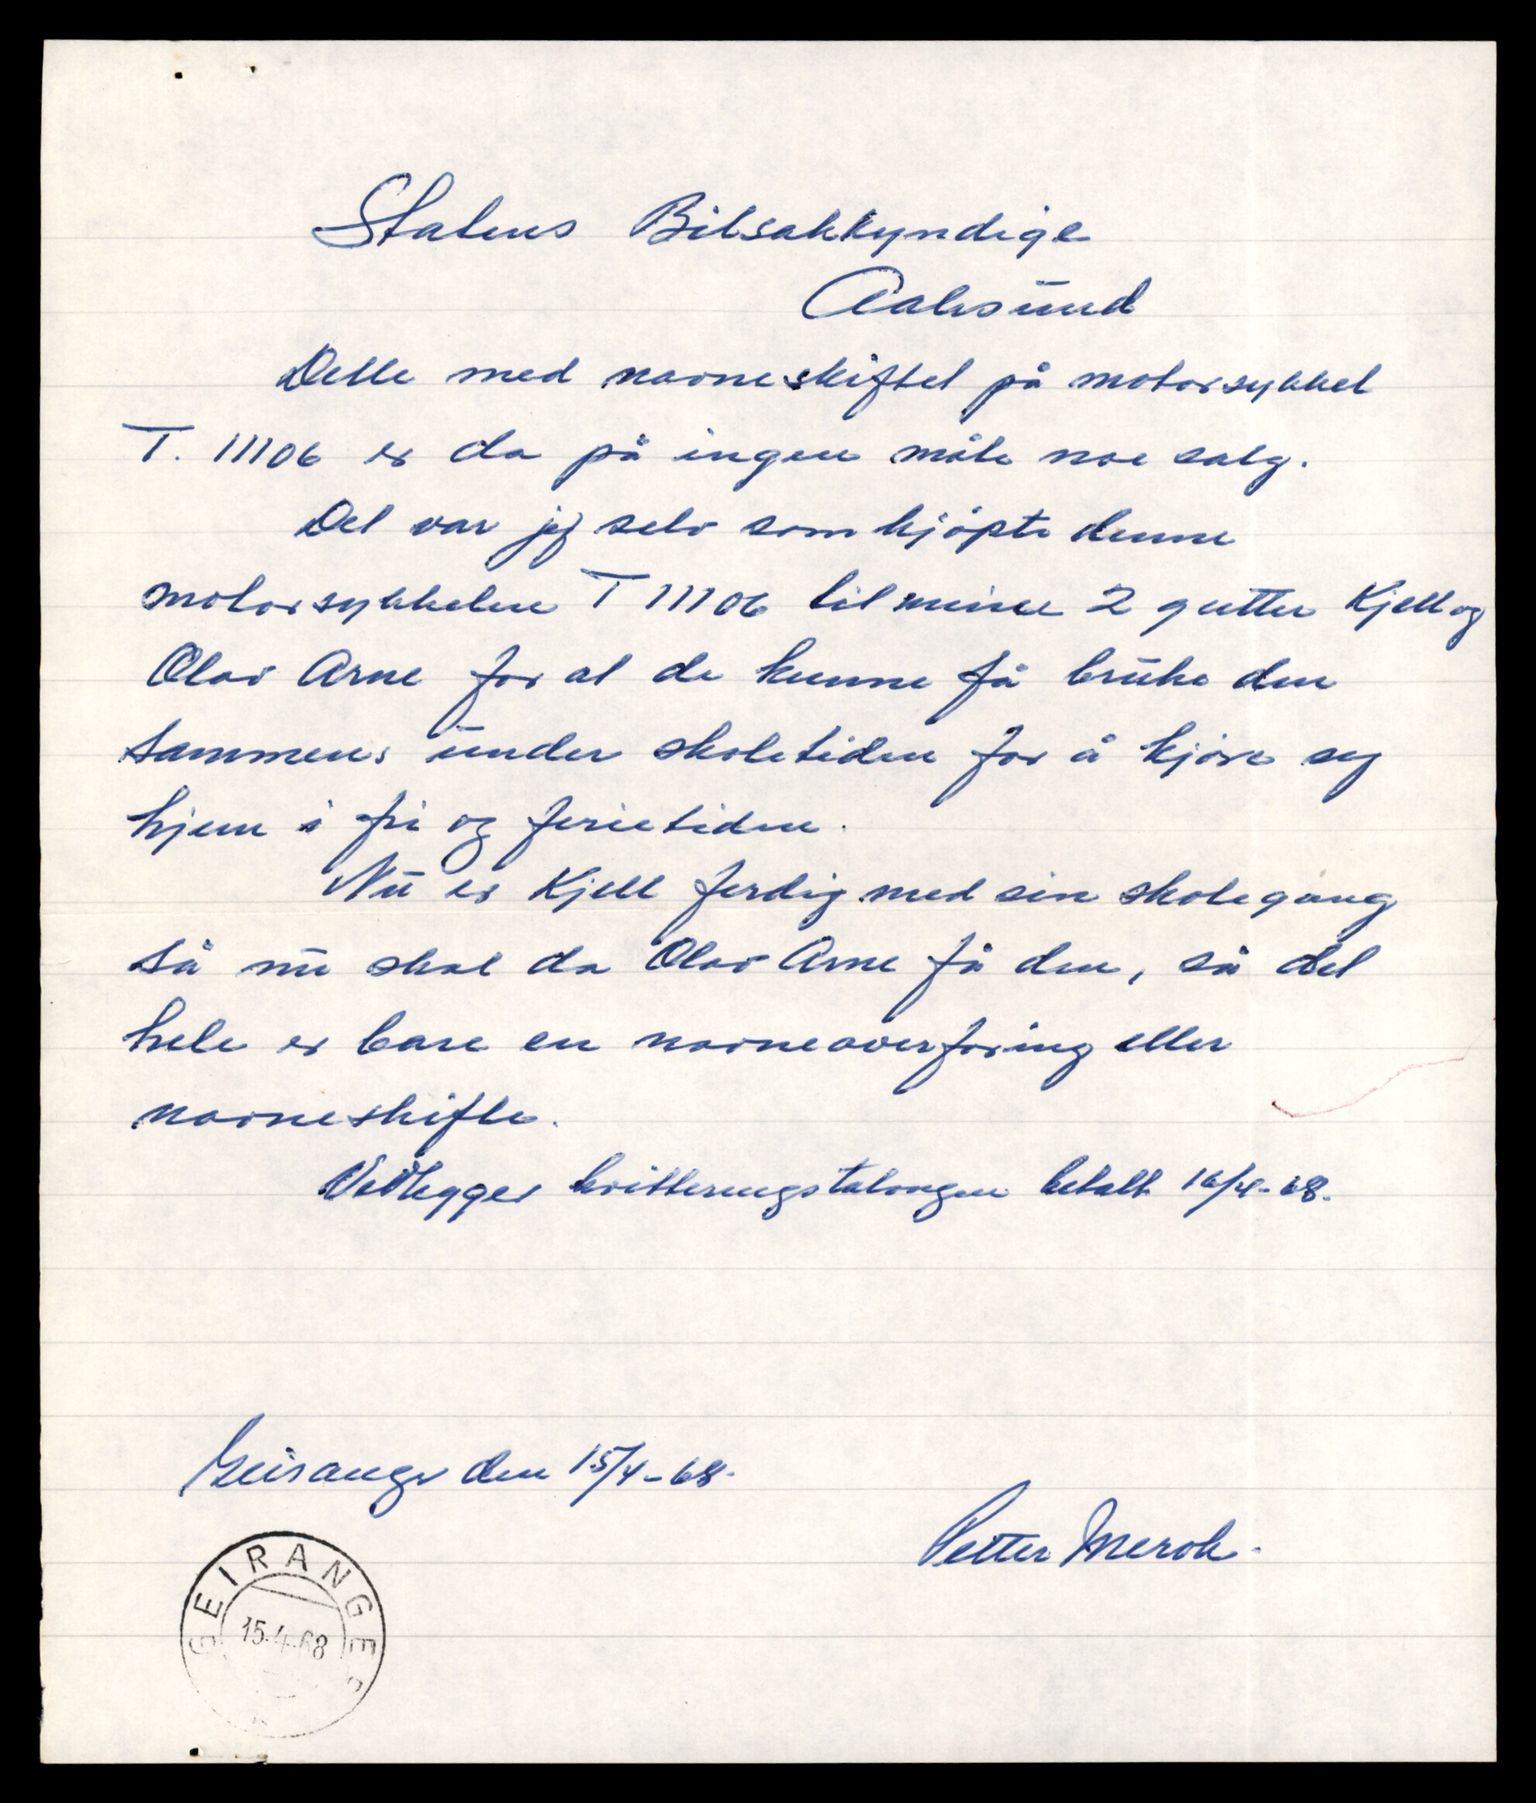 Statens Bilsakkyndige
Aalesund
Dette med navneskiftet på motorsykkel
T. 11106 er da på ingen måte noe salg.
Det var jeg selv som kjöpte denne
motorsykkelen T 11106 til mine 2 gutter Kjell og
Olav Arne for at de kunne få bruke den
sammen, under skoletiden for å kjöre seg
hjem i fri og ferietiden.
Nu er Kjell ferdig med sin skolegang
så nu skal da Olav Arne få den, så det
hele er bare en navneoverföring eller
navneskifte.
Vedlegger kvitteringstalongen betalt 16/4-68.
Geiranger den 15/4-68.
Petter Merok.
GEIRANGER
15.4.68